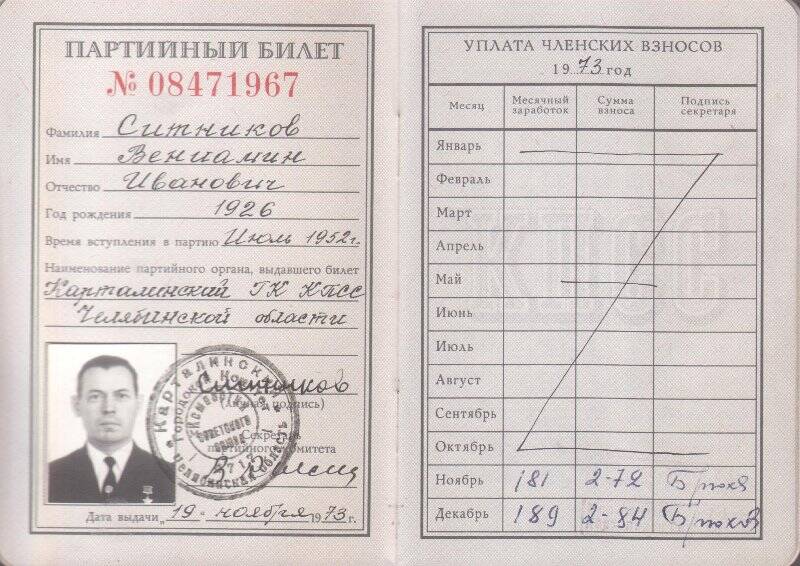 ПАРТИЙНЫЙ БИЛЕТ
№ 08471967
Фамилия Ситников
Имя Вениамин
Отчество Иванович
Год рождения 1926
Время вступления в партию Июль 1952г.
Наименование партийного органа, выдавшего билет
Карталинский ГК КПСС
Челябинской области
Ситников
(личная подпись)
Секретарь
партийного комитета
Дата выдачи „19" ноября 1973 г.
УПЛАТА ЧЛЕНСКИХ ВЗНОСОВ
1973 год
Месяц Месячный заработок Сумма взноса Подпись секретаря
Январь
Февраль
Март
Апрель
Май
Июнь
Июль
Август
Сентябрь
Октябрь
Ноябрь 181 2-72
Декабрь 189 2-84